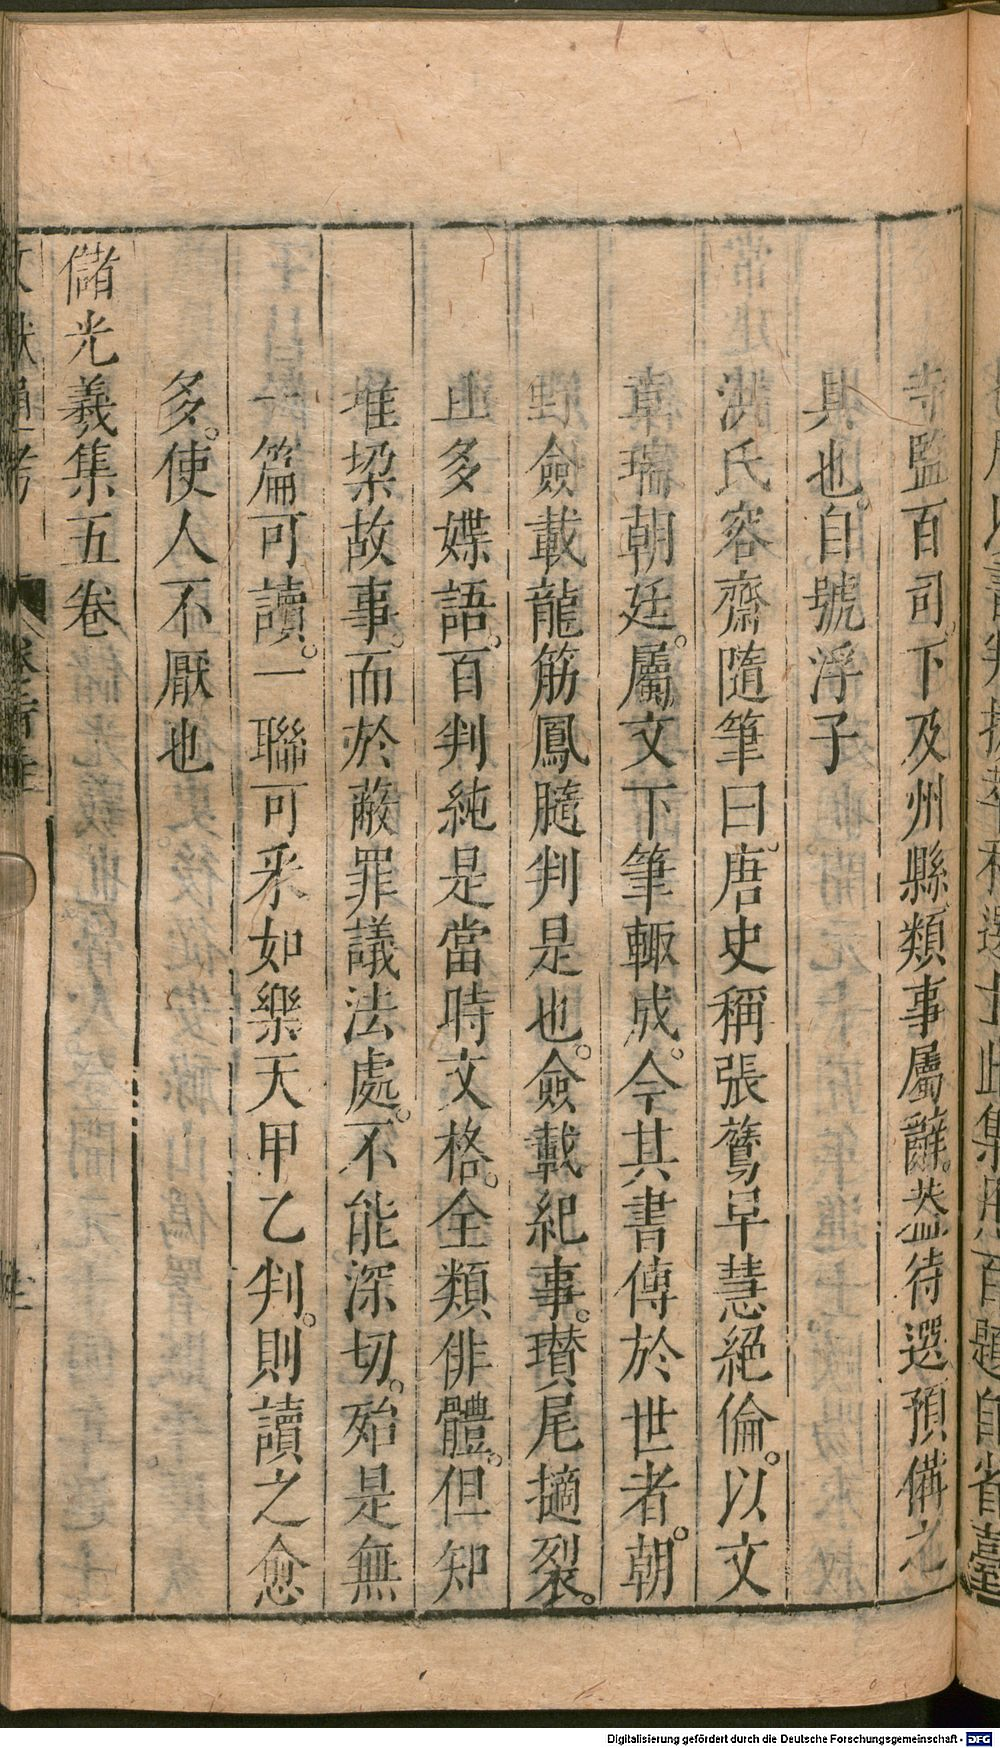 寺監百司。下及州縣類事屬辭。葢待選預備之
具也。自號浮子
洪氏容齋隨筆曰。唐史稱張鷟早慧絕倫。以文
章瑞朝廷。屬文下筆輙成。今其書傳於世者。朝
野僉載龍筋鳳髓判是也。僉載紀事。瓚尾擿裂。
且多媟語。百判純是當時文格。全類俳體。但知
堆梁故事。而於蔽罪議法處。不能深切。殆是無
一篇可讀。一聯可采如樂天甲乙判。則讀之愈
多。使人不厭也
儲光義集五卷
文獻通考
Digitalisierung gefördert durch die Deutsche Forschungsgemeinschaft - DFG